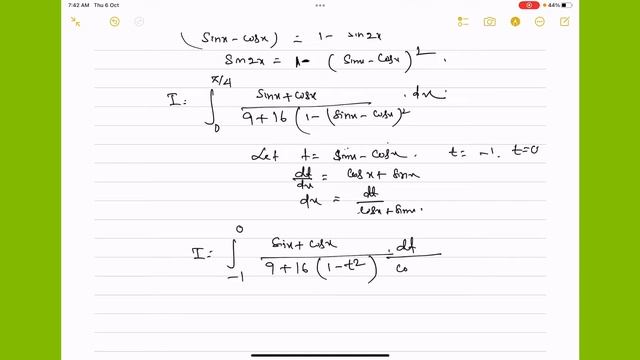 7:42 AM Thu 6 Oct
44%
(sinx - cosx) = 1 - sin2x
sin2x = 1 - (sinx - cosx)²
I = ∫₀^π/4 (sinx + cosx) / (9 + 16 (1 - (sinx - cosx)²) . dx
Let t = sinx - cosx. t = -1. t = 0
dt/dx = cosx + sinx
dx = dt / cosx + sinx.
I = ∫₋₁^0 (sinx + cosx) / (9 + 16 (1 - t²)) . dt / co